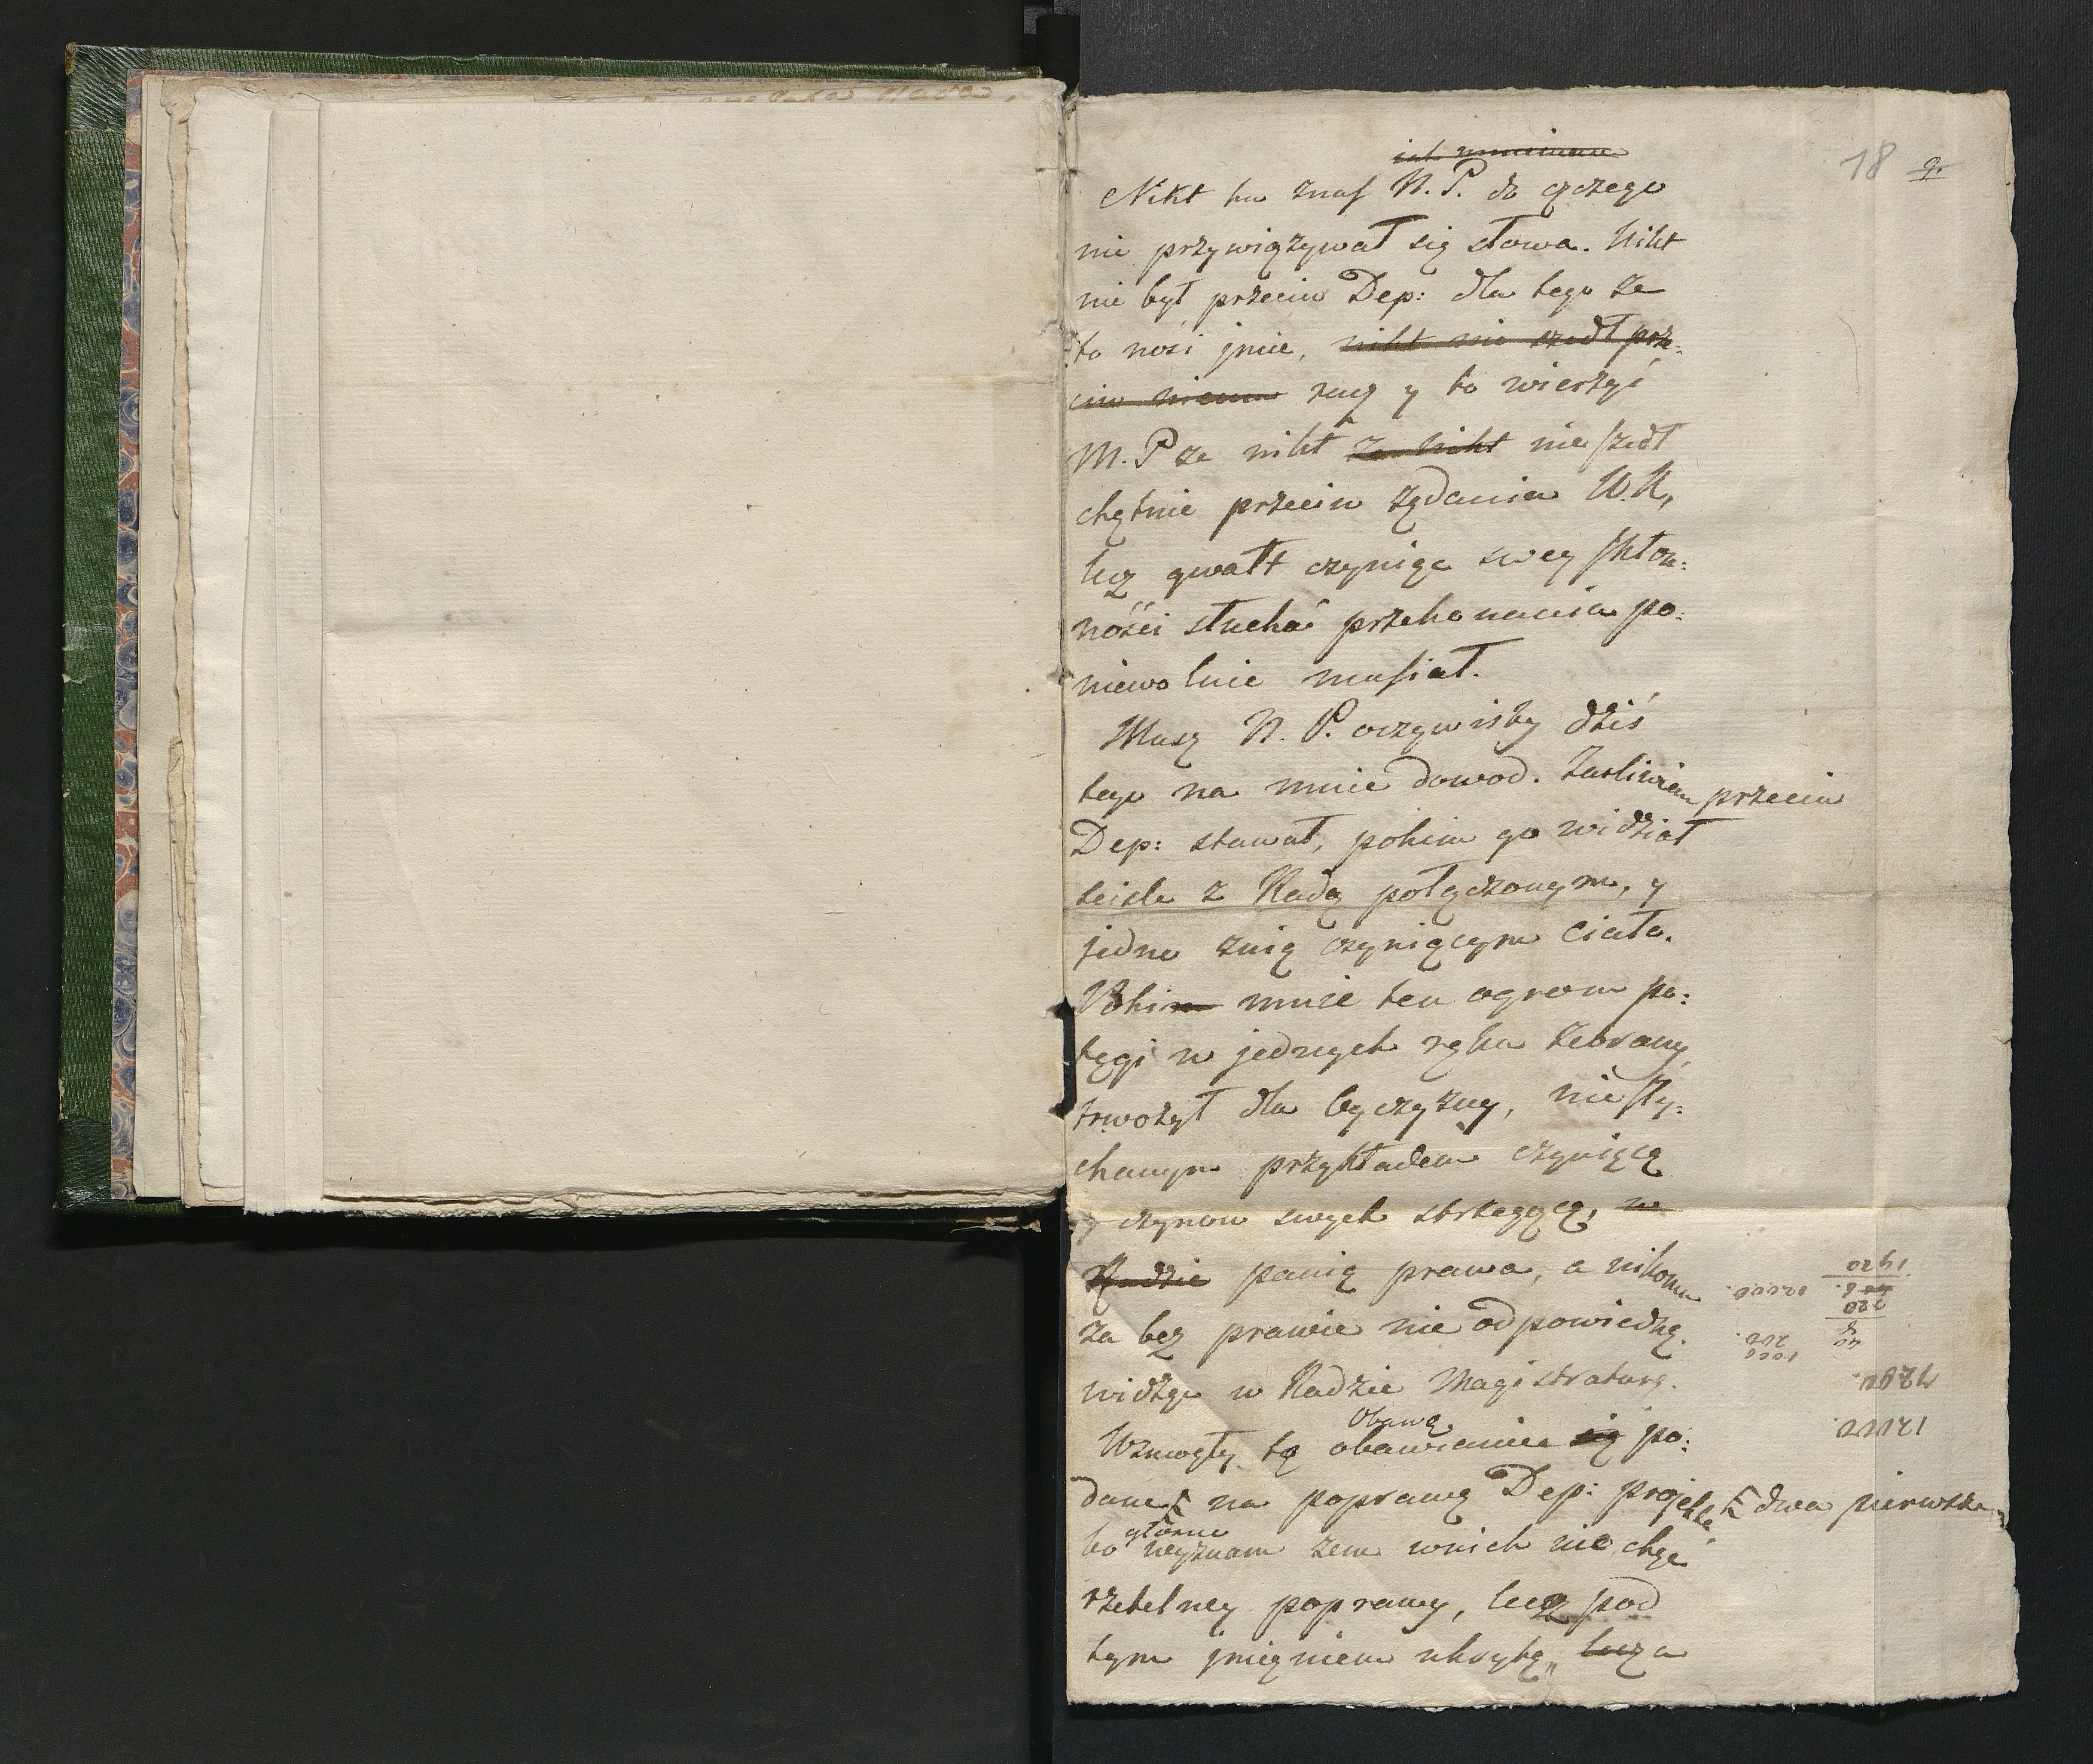 18 9.
Nikt tu znas N. P. do czczego
nie przywiązywał się słowa. Nikt
nie był przeciw Dep: dla tego że
to nosi jmie, nikt nie szedł prze:
ciw niemu racz y to wierzyć
M. P że nikt że nikt nie szedł
chętnie przeciw żądaniu W. K,
lecz gwałt czyniąc swey skłon:
ności słuchać przekonania po:
niewolnie musiał.
Masz N. P. oczywisty dziś
tego na mnie dowod. Żarliwiem przeciw
Dep: stawał, pokim go widział
scisle z Radą połączonym, y
jedno znią czyniącym ciało.
Poki mnie ten ogrom po:
tęgi w jednych ręku zebrany,
trwożył dla Oyczyzny, niesły:
chanym przykładem czyniącą
y czynow swych strzegącą, w
Radzie panią prawa, a nikomu
za bez prawie nie odpowiedną.
widzę w Radzie Magistraturę.
Obawę
Wzmogły tę obawianie się po:
dane na poprawę Dep: projekta dwa pierwsze
głosne
bo wyznam żem wnich nie chęć
rzetelney poprawy, lecz pod
tym jmięniem ukrytą, lecz a